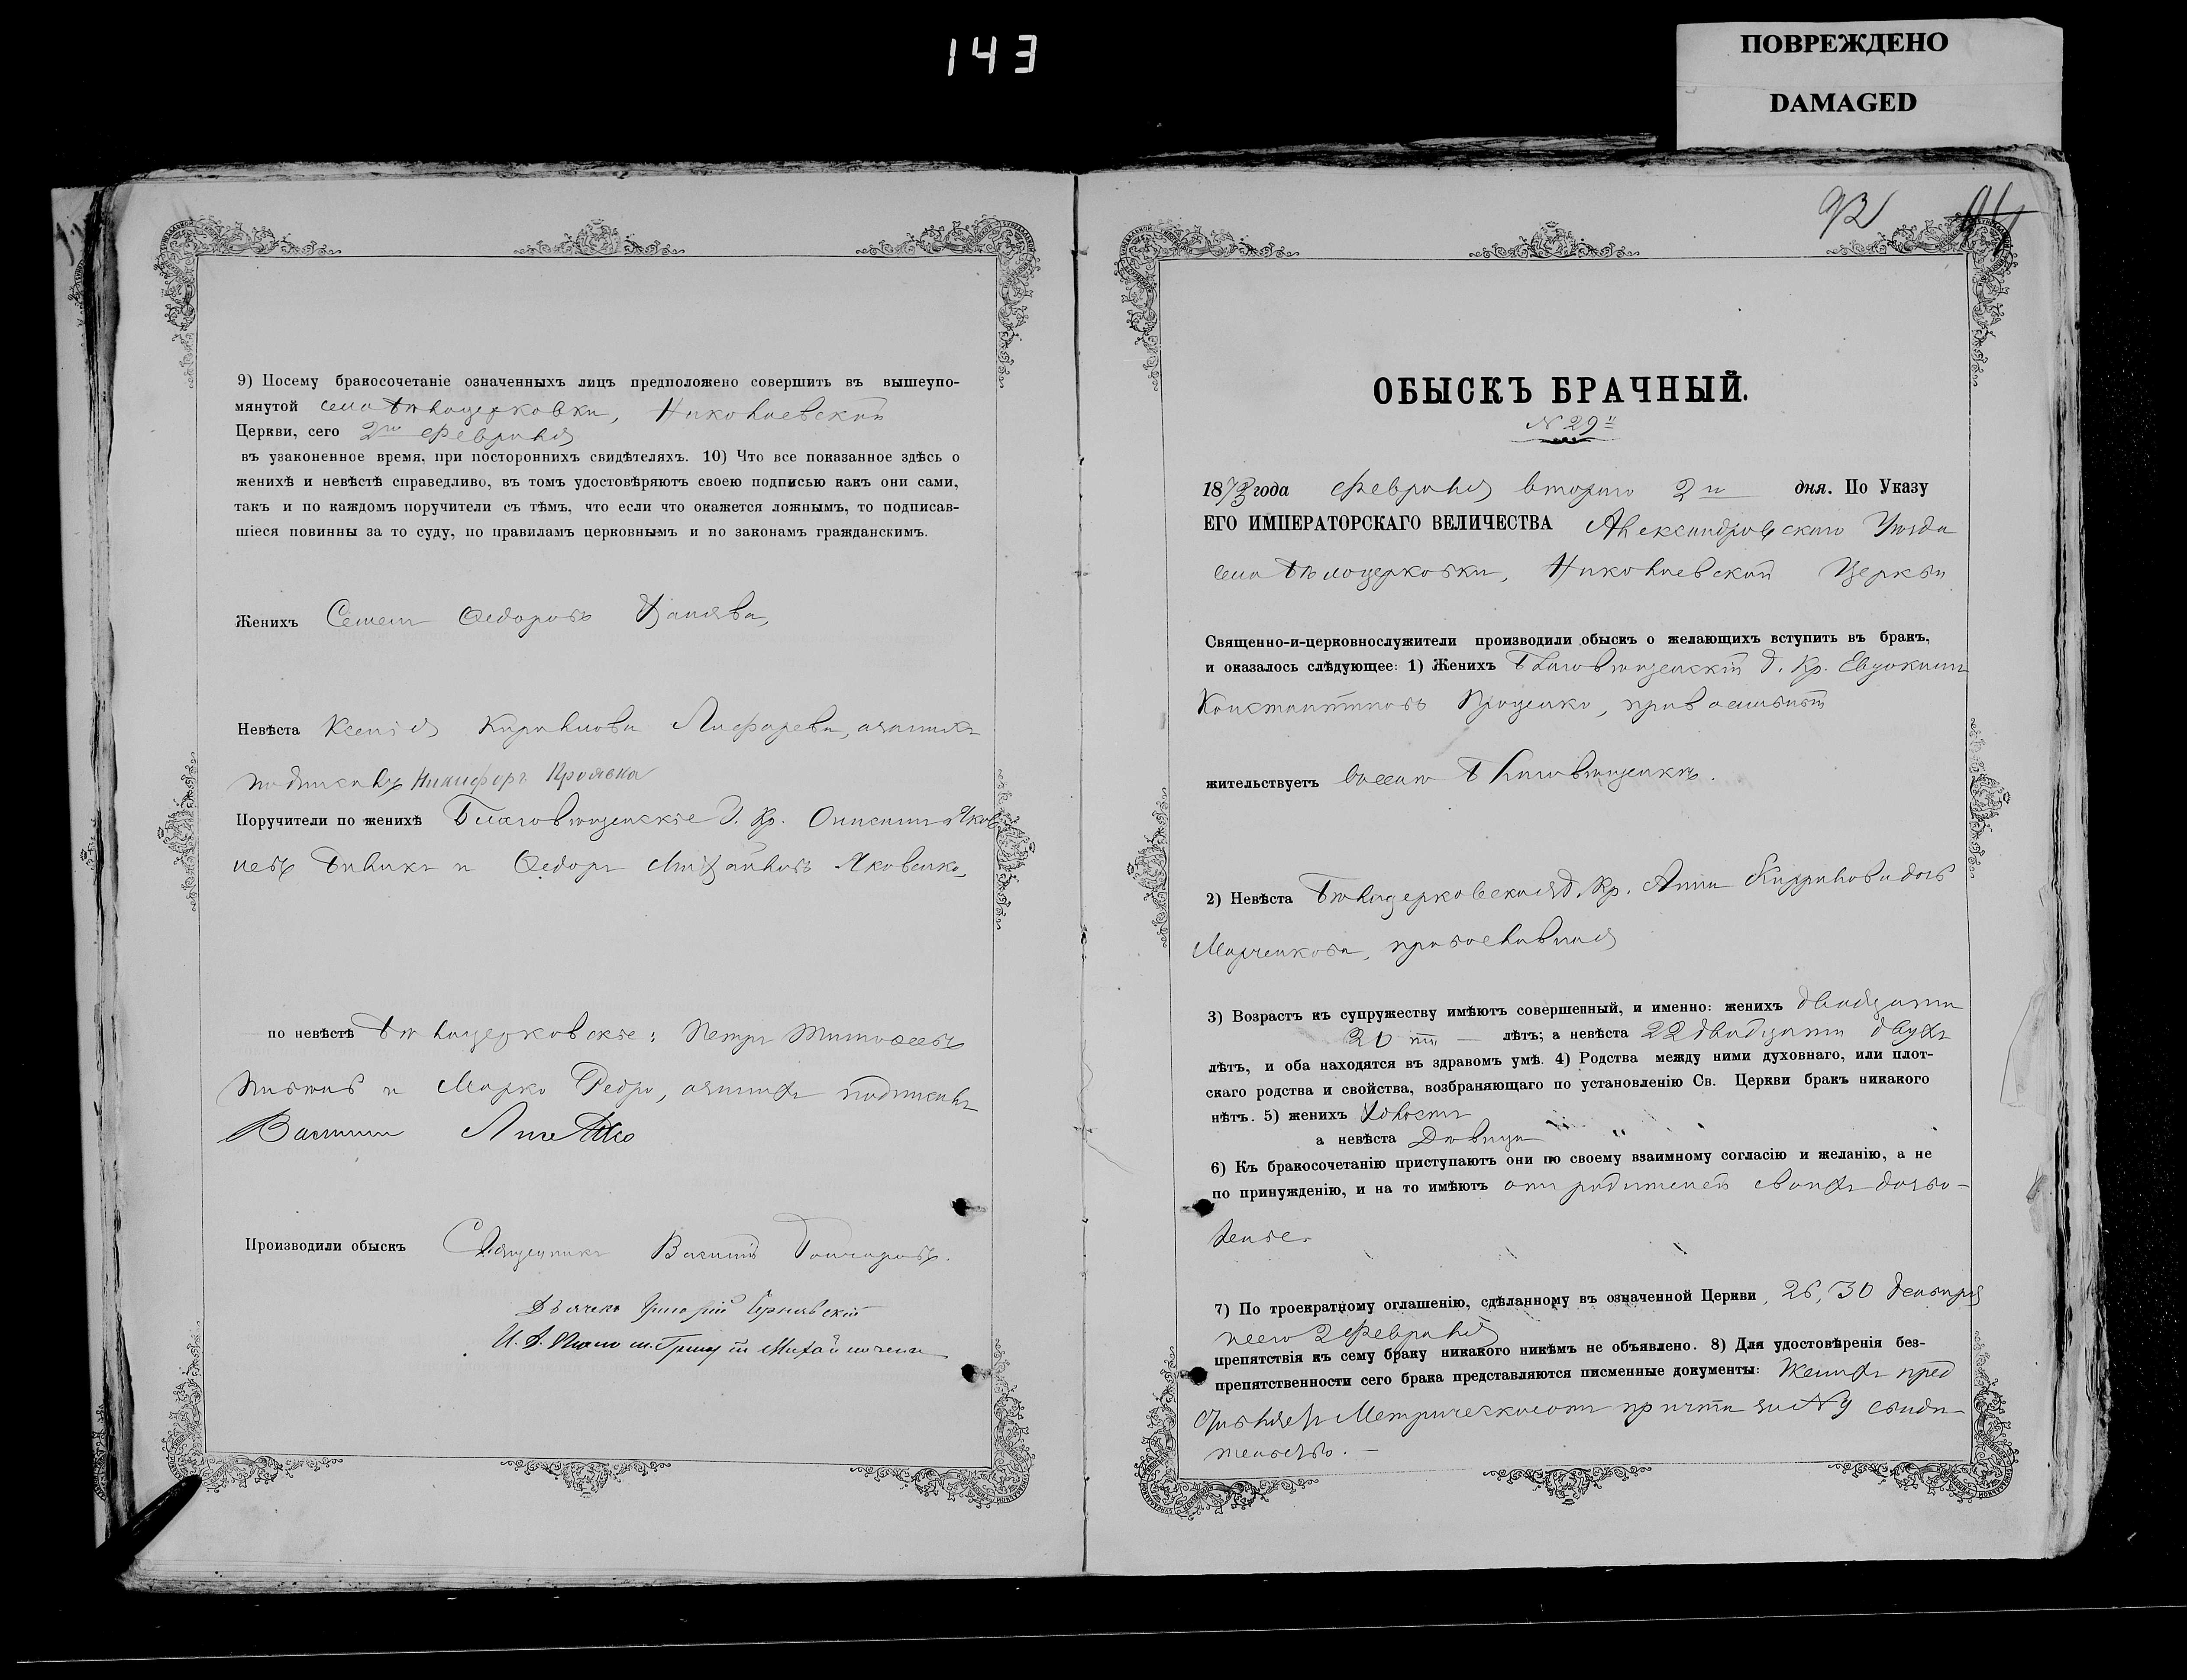 143
ПОВРЕЖДЕНО
DAMAGED
9) Посему бракосочетаніе означенныхъ лицъ предположено совершить въ вышеупо-
мянутой села Бѣлоцерковки, Николаевской
Церкви, сего 2го Февраля
въ узаконенное время, при постороннихъ свидѣтеляхъ. 10) Что все показанное здѣсь о
женихѣ и невѣстѣ справедливо, въ томъ удостовѣряютъ своею подписью какъ они сами,
такъ и по каждомъ поручители съ тѣмъ, что если что окажется ложнымъ, то подписав-
шіеся повинны за то суду, по правиламъ церковнымъ и по законамъ гражданскимъ.
Женихъ Семенъ Ѳедоровъ
Невѣста Ксенія Кирилова
Никифоръ
Поручители по женихѣ Благовѣщенскіе Г. Кр. Онисимъ Яков
левъ и Ѳедоръ Михайловъ Яковенко
по невѣстѣ Бѣлоцерковскіе: Петръ Тимоѳеевъ
и Марко Редро,
Производили обыскъ Священникъ Василій Гончаровъ.
Дьячекъ Григорій
93
94
ОБЫСКЪ БРАЧНЫЙ.
N 29й
1873 года Февраля втораго 2го дня. По Указу
ЕГО ИМПЕРАТОРСКАГО ВЕЛИЧЕСТВА Александровскаго Уѣзда
села Бѣлоцерковки, Николаевской Церкви
Священно-и-церковнослужители производили обыскъ о желающихъ вступить въ бракъ,
и оказалось слѣдующее: 1) Женихъ Благовѣщенскій Г. Кр. Евдокимъ
Константиновъ Проценко, православный
жительствуетъ въ селѣ Благовѣщенкѣ.
2) Невѣста Бѣлоцерковская Г. Кр. Анна Кирилова дочь
Марченкова, православная
3) Возрастъ къ супружеству имѣютъ совершенный, и именно: женихъ двадцати
20 ти — лѣтъ; а невѣста 22 двадцати двухъ
лѣтъ, и оба находятся въ здравомъ умѣ. 4) Родства между ними духовнаго, или плот-
скаго родства и свойства, возбраняющаго по установленію Св. Церкви бракъ никакого
нѣтъ. 5) женихъ Холостъ
а невѣста Дѣвица
6) Къ бракосочетанію приступаютъ они по своему взаимному согласію и желанію, а не
по принужденію, и на то имѣютъ отъ родителей своихъ дозво-
леніе.
7) По троекратному оглашенію, сдѣланному въ означенной Церкви, 26, 30 Генваря
и сего 2 Февраля
препятствія къ сему браку никакого никѣмъ не объявлено. 8) Для удостовѣренія без-
препятственности сего брака представляются писменные документы: Женихъ пред
ставляетъ Метрическое отъ причта за N 9 свидѣ-
тельство. —